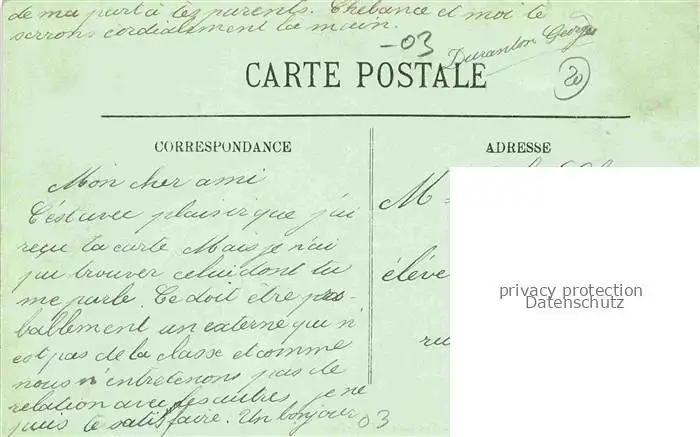 de ma part à tes parents. Thebance et moi te
serrons cordialement la main.
-03
Duranton Georges
20
CARTE POSTALE
CORRESPONDANCE
ADRESSE
Mon cher ami
C'est avec plaisir que j'ai
reçu ta carte. Mais je n'ai
pu trouver celui dont tu
me parle. Ce doit être pro-
ballement un externe qui n'
est pas de la classe et comme
nous n'entretenons pas de
relation avec les autres je ne
puis te satisfaire. Un bonjour
03
M
élève
ru
privacy protection
Datenschutz